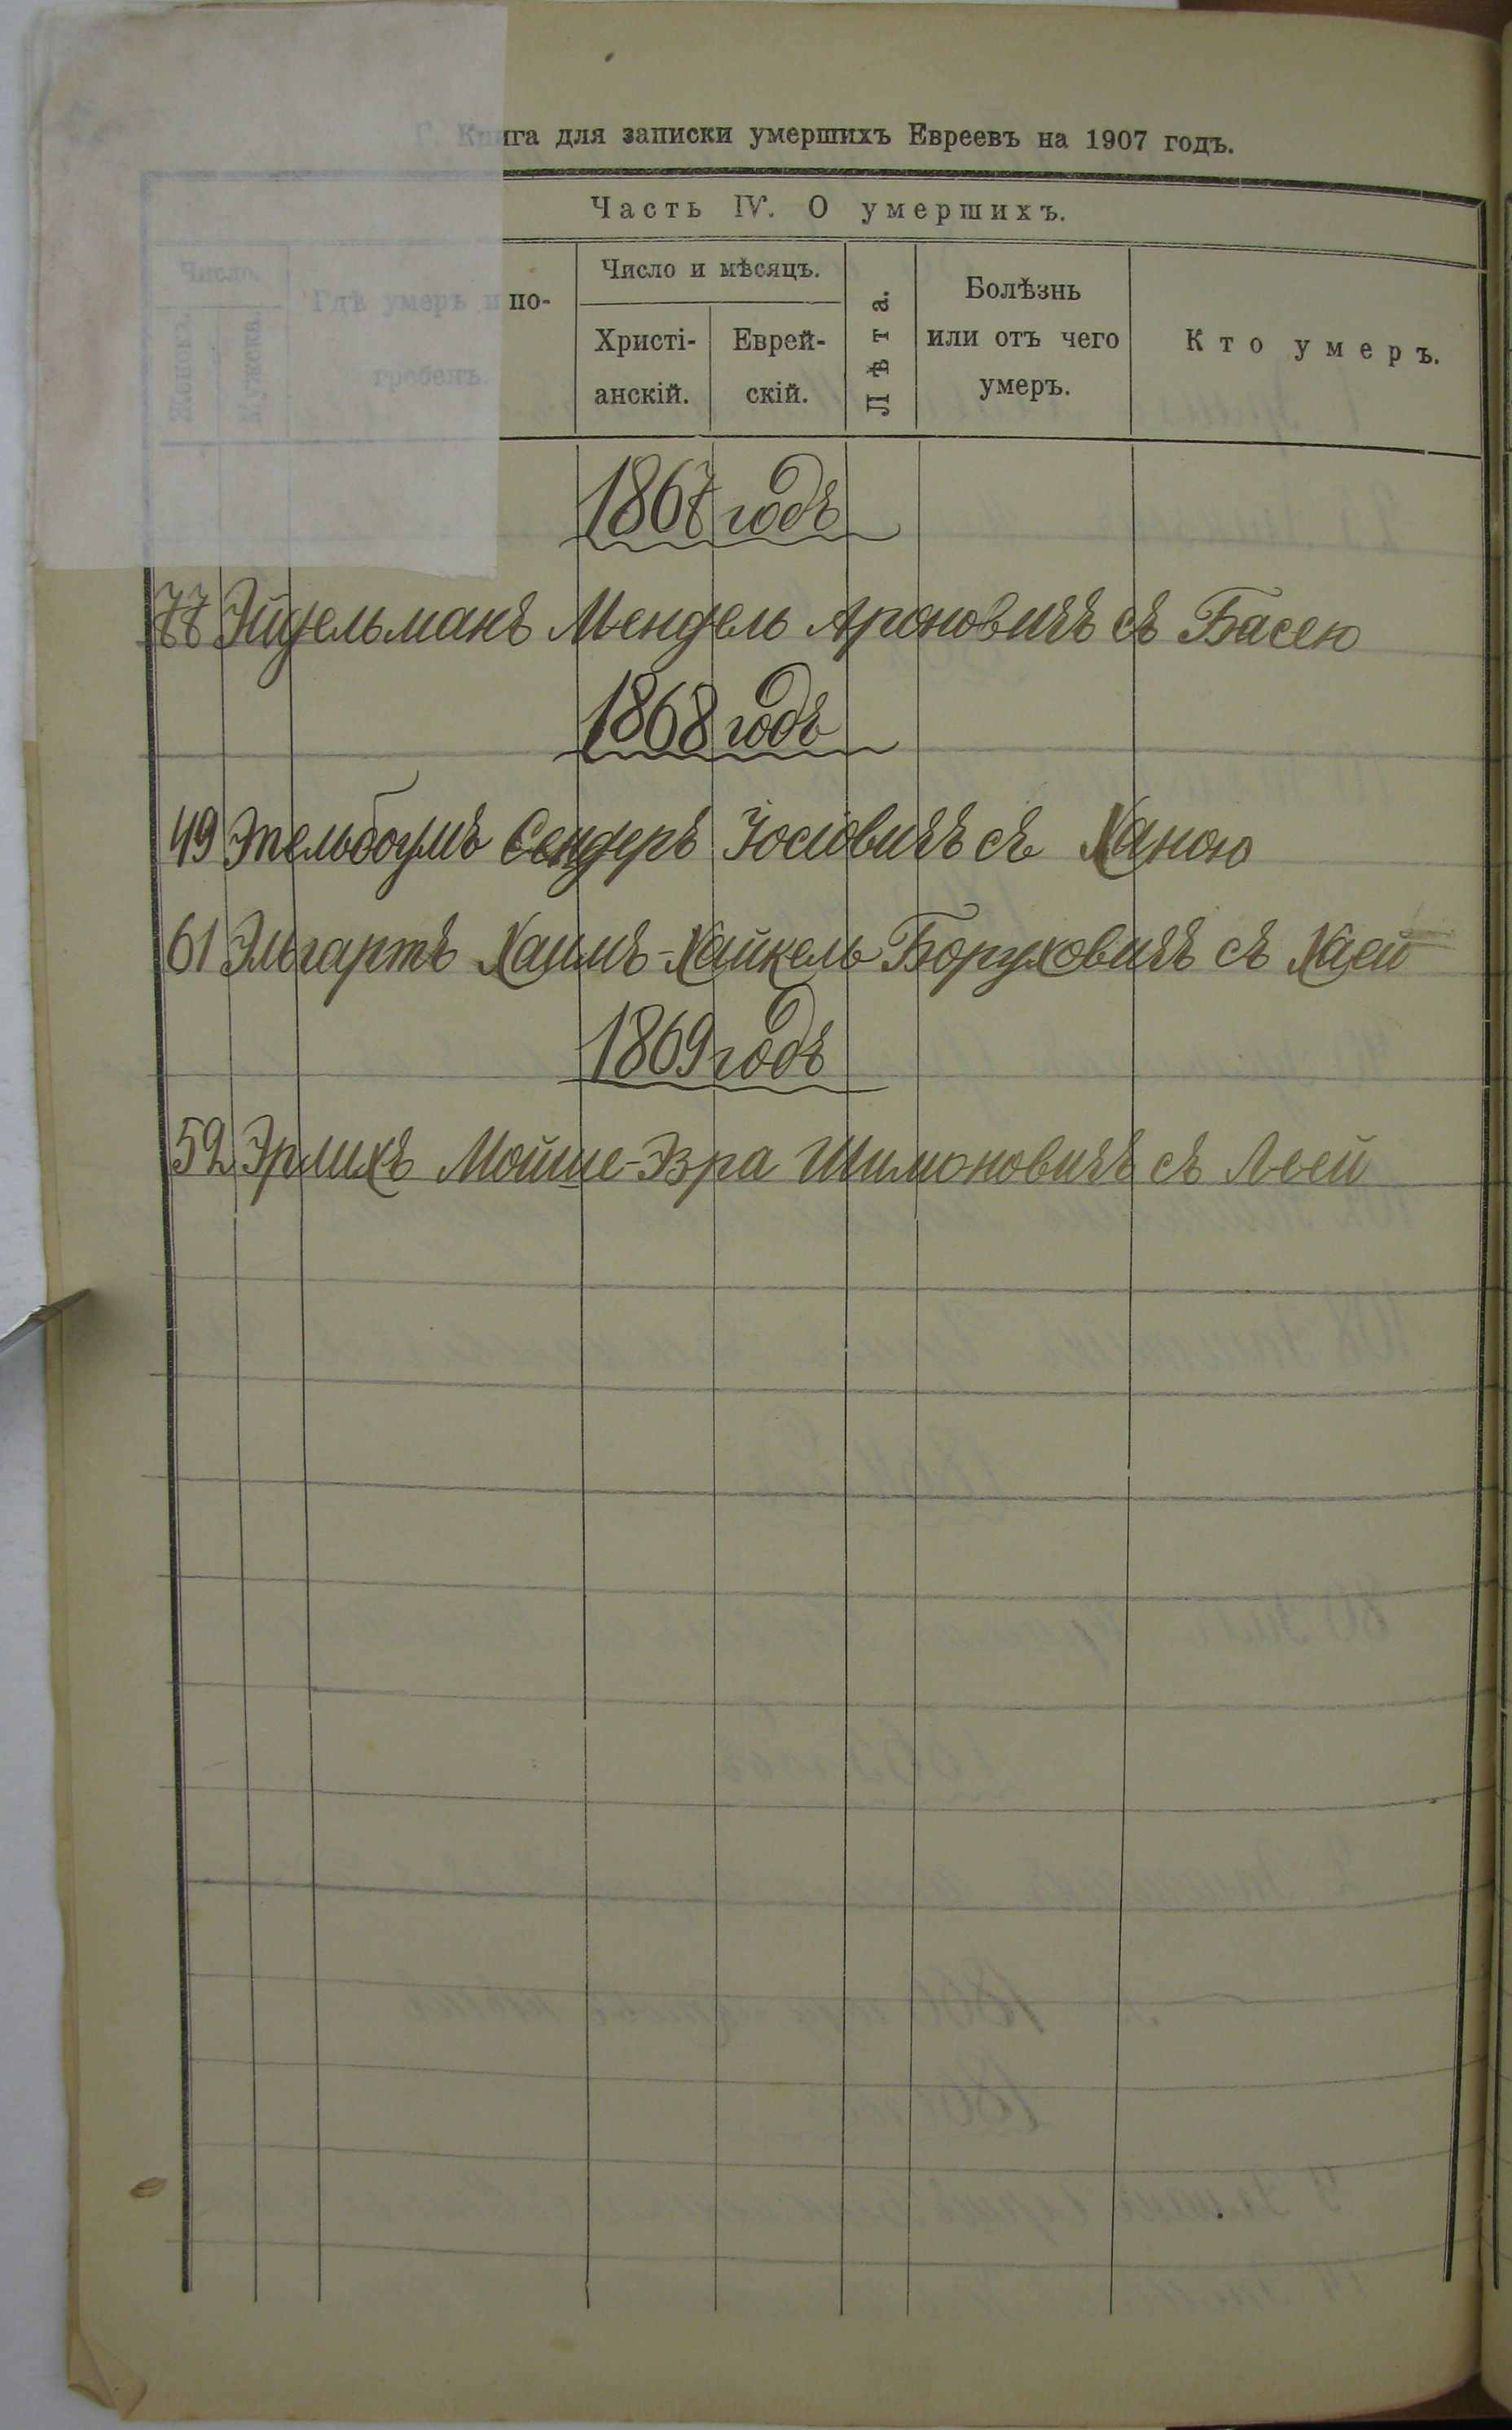 Г. Книга для записки умершихъ Евреевъ на 1907 годъ.
Часть IV. О умершихъ.
Число.
Женска.
Мужска.
Гдѣ умеръ и по-
гребенъ.
Число и мѣсяцъ.
Христі-
анскій.
Еврей-
скій.
Лѣта.
Болѣзнь
или отъ чего
умеръ.
Кто умеръ.
1867 годъ
77 Эйдельманъ Мендель Ароновичъ съ Басею
1868 годъ
49 Этельбоумъ Сендеръ Іосіовичъ съ Ханою
61 Эльгартъ Хаимъ-Хайкель Боруховичъ съ Хаей
1869 годъ
52 Эрлихъ Мойше-Эзра Шимоновичъ съ Леей